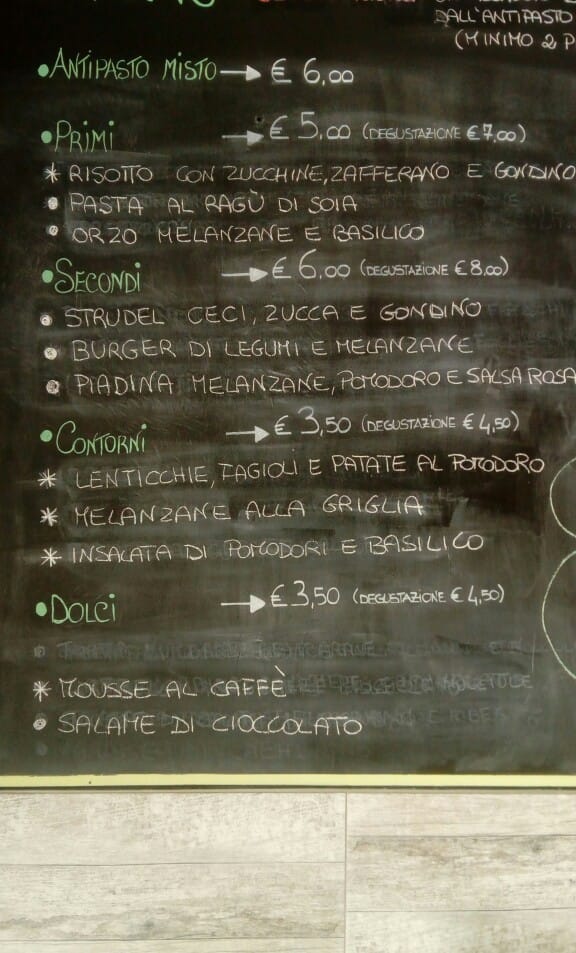 DALL'ANTIPASTO
(MINIMO 2 P
•ANTIPASTO MISTO → € 6,00
•PRIMI → € 5,00 (DEGUSTAZIONE € 7,00)
* RISOTTO CON ZUCCHINE, ZAFFERANO E GONDINO
• PASTA AL RAGÙ DI SOIA
• ORZO MELANZANE E BASILICO
•SECONDI → € 6,00 (DEGUSTAZIONE € 8,00)
• STRUDEL CECI, ZUCCA E GONDINO
• BURGER DI LEGUMI E MELANZANE
• PIADINA MELANZANE, POMODORO E SALSA ROSA
•CONTORNI → € 3,50 (DEGUSTAZIONE € 4,50)
* LENTICCHIE, FAGIOLI E PATATE AL POMODORO
* MELANZANE ALLA GRIGLIA
* INSALATA DI POMODORI E BASILICO
•DOLCI → € 3,50 (DEGUSTAZIONE € 4,50)
* MOUSSE AL CAFFÈ
• SALAME DI CIOCCOLATO